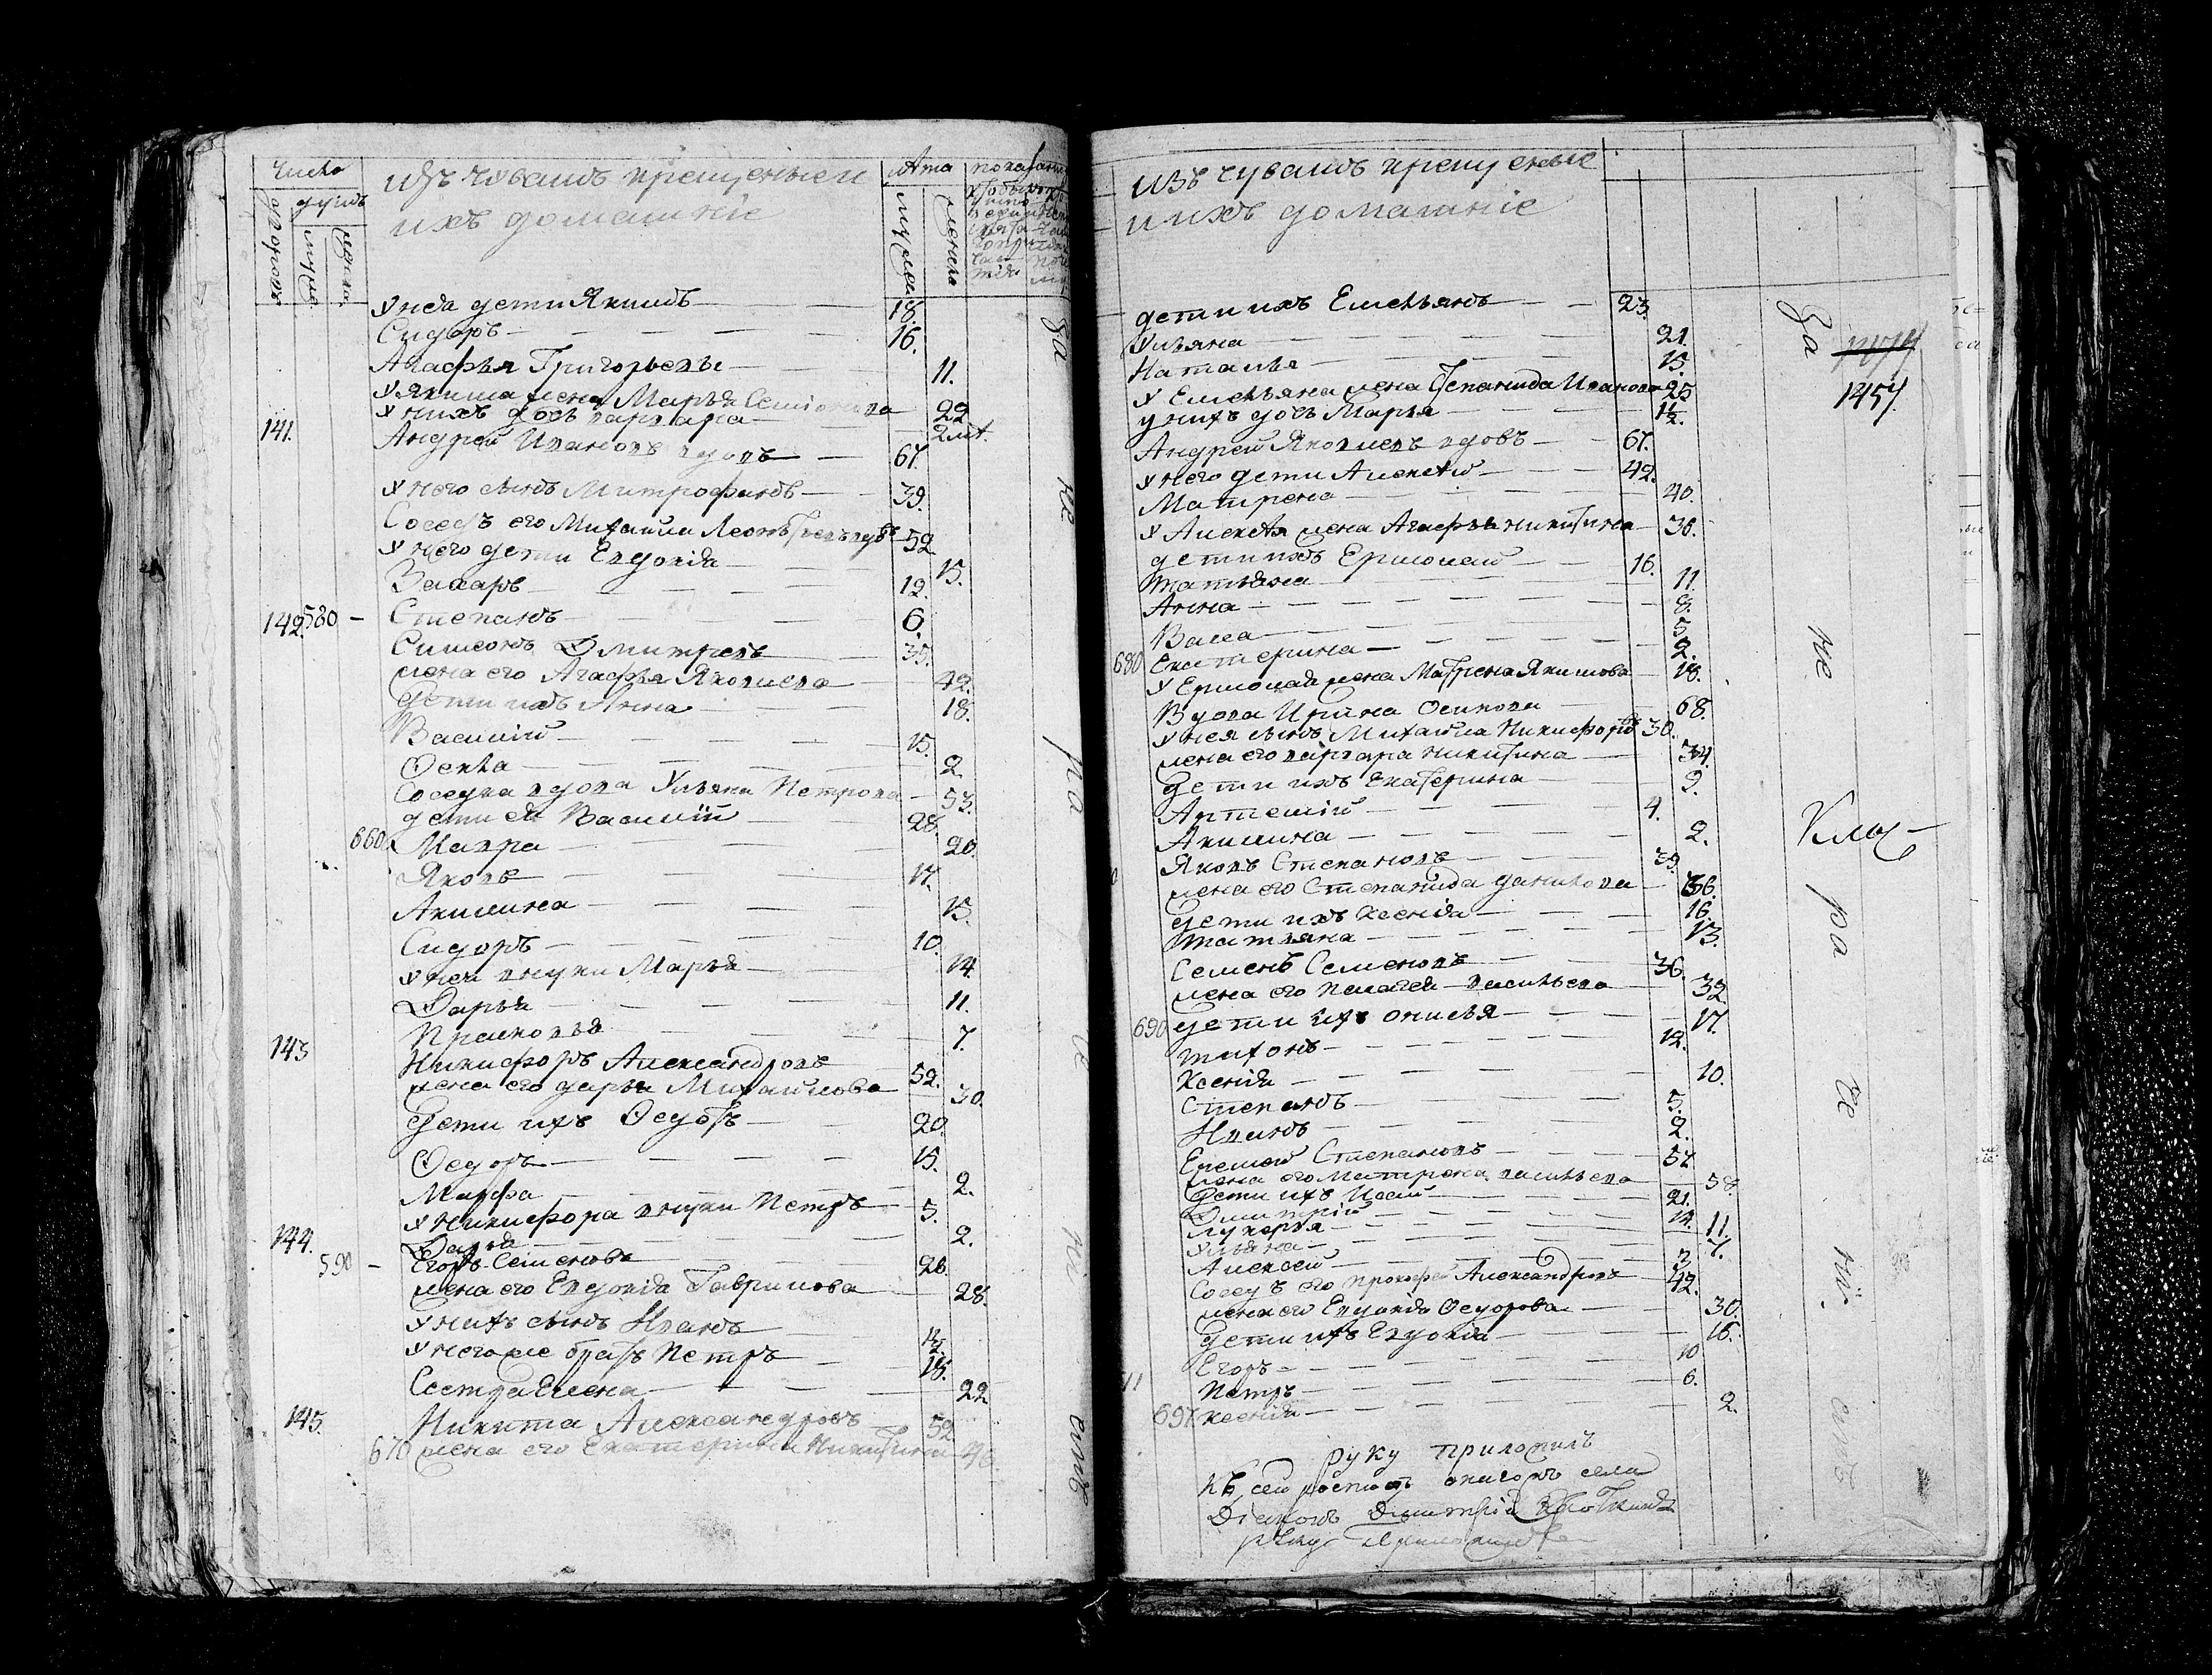 Число
душъ
дворовъ
мужес
женска
изъ чувашъ крещеныеи
ихъ домашнїе
Лѣта
мужска
женска
У нея дети Якимъ 18.
Сидоръ 16.
Агафья Григорьевы 11.
У Якима жена Марья Семіонова 22
У нихъ дочь варвара 2 м
141. Андрей Ивановъ вдовъ 67.
У него сынъ Митрофанъ 39.
Соседъ его Михаила Леонтьевъ вдовъ 52
У него дети Евдокія 15.
Захаръ 12.
580 Степанъ 6.
142. Симеонъ Дмитревъ 35.
жена его Агафья Яковлева 42.
Дети ихъ Анна 18.
Василій 15.
Ѳекла 2
Соседка вдова Ульяна Петрова 53.
дети ей Василій 28.
660 Мавра 20.
Яковъ 17.
Акилина 15.
Сидоръ 10.
У ней внуки Марья 14.
Дарья 11.
Прасковья 7.
143 Никифоръ Александровъ 52.
жена его дарья Михайлова 30.
Дети ихъ Ѳедотъ 20.
Ѳедоръ 15.
Марфа 2.
У Никифора внуки Петръ 5.
Дарья 2.
144. Егоръ Семеновъ 26.
590
жена его Евдокія Гаврилова 28.
У нихъ сынъ Иванъ 1½.
У него же братъ Петръ 18.
Сестра Елена 22
145. Никита Александровъ 52
670 жена его Екатерина Никитина 46.
За
не
ра
де
ні
емъ
изъ чувашъ крещеные
и ихъ домашнїе
дети ихъ Емельянъ 23.
Ульяна 21.
Наталья 15.
У Емельяна жена Степанида Иванова 25
у нихъ дочь Марья 1½.
Андрей Яковлевъ вдовъ 67.
У него дети Алексѣй 42.
Матрена 40.
У Алексѣя жена Агафья никитина 36.
дети ихъ Ермолай 16.
Татьяна 11.
Анна 8.
Васса 5
680 Екатерина 2.
У Ермолая жена Матрена Якимова 18.
Вдова Ирина Осипова 68.
У нея сынъ Михайла Никифоровъ 30.
жена его варвара никитина 34.
Дети ихъ Екатерина 9.
Артемій 4.
Акилина 2.
Яковъ Степановъ 39.
жена его Степанида данилова 36.
дети ихъ Ксенія 16.
Татьяна 13.
Семенъ Семеновъ 36.
жена его пелагея васильева 32
690 дети ихъ онисья 17.
Тихонъ 12.
Ксенія 10.
Степанъ 5.
Иванъ 2.
Еремей Степановъ 57
жена его Матрена васильева 58.
Дети ихъ Исай 21.
Дмитрій 14.
лукерья 11.
Ульяна 7.
Алексей 3
Соседъ его прокофей Александровъ 42.
жена его Евдокія Ѳедорова 30.
Дети ихъ Евдокія 16.
Егоръ 10
Петръ 6.
697 Ксенія 2.
За
1457.
не
Кла
ра
де
ніі
емъ
руку приложилъ
къ сей росписи онагожъ села
Діаконъ Димитрій
руку приложилъ